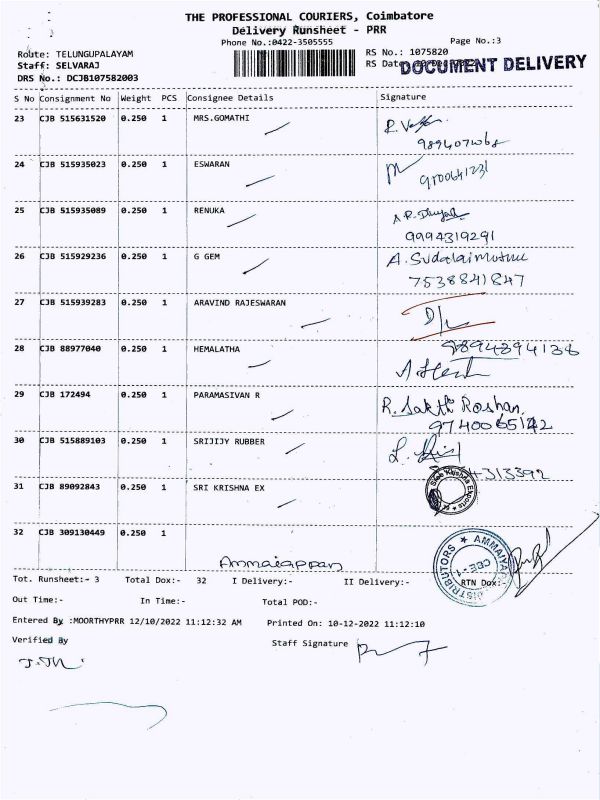 THE PROFESSIONAL COURIERS, Coimbatore
Delivery Runsheet - PRR
Phone No.:0422-3505555
Page No.:3
Route: TELUNGUPALAYAM
RS No.: 1075820
Staff: SELVARAJ
RS Date
DOCUMENT DELIVERY
DRS No.: DCJB107582003
S No Consignment No Weight PCS Consignee Details Signature
23 CJB 515631520 0.250 1 MRS.GOMATHI
24 CJB 515935023 0.250 1 ESWARAN
9700641231
25 CJB 515935089 0.250 1 RENUKA
9994319291
26 CJB 515929236 0.250 1 G GEM A. Sudalaimuthu
7538841847
27 CJB 515939283 0.250 1 ARAVIND RAJESWARAN
D/L
9894394138
28 CJB 88977040 0.250 1 HEMALATHA
29 CJB 172494 0.250 1 PARAMASIVAN R
R. Sakthi Roshan.
9740065142
30 CJB 515889103 0.250 1 SRIJIJY RUBBER
313392
31 CJB 89092843 0.250 1 SRI KRISHNA EX
Sree Krishna Exports
32 CJB 309130449 0.250 1
Ammaiappan
DISTRIBUTORS
CBE - 1
Tot. Runsheet:- 3 Total Dox:- 32 I Delivery:- II Delivery:- RTN Dox:-
Out Time:- In Time:- Total POD:-
Entered By :MOORTHYPRR 12/10/2022 11:12:32 AM Printed On: 10-12-2022 11:12:10
Verified By Staff Signature